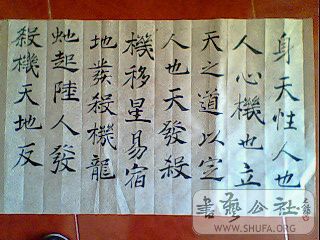 身天性人也
人心機也立
天之道以定
人也天發殺
機移星易宿
地發殺機龍
虵起陸人發
殺機天地反
書藝公社
WWW.SHUFA.ORG